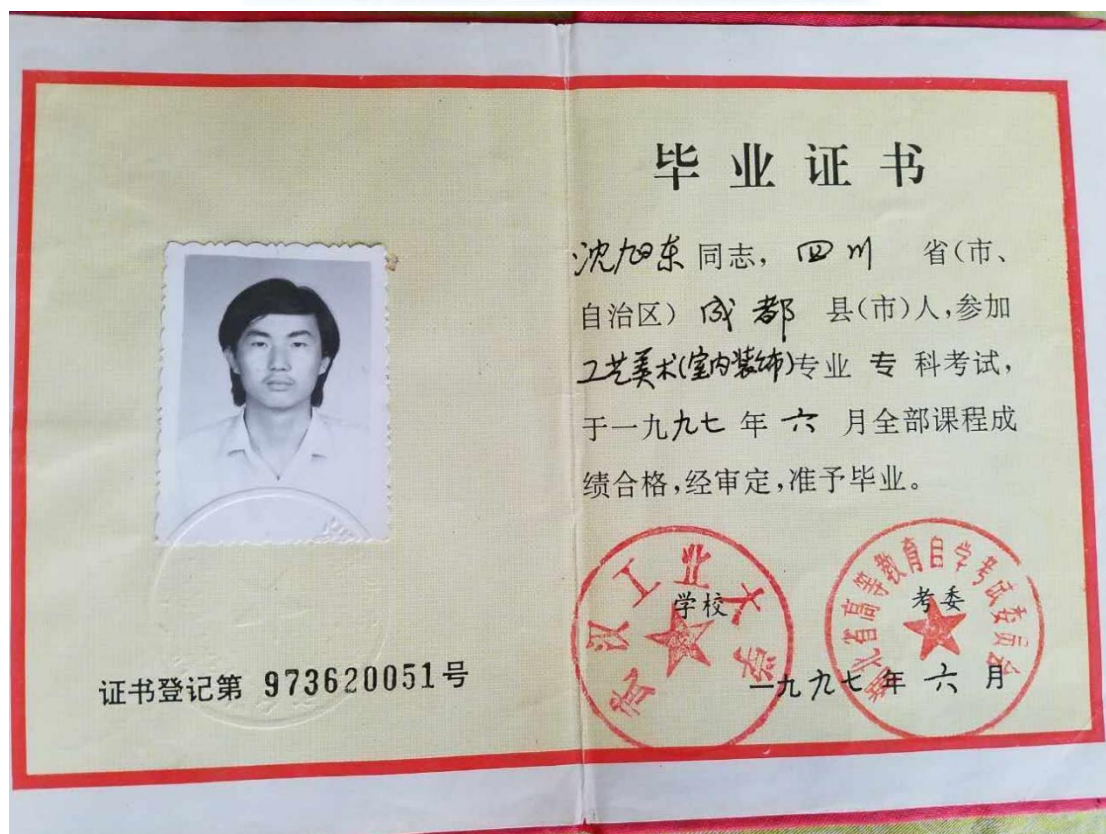 毕业证书
沈旭东同志，四川 省(市、
自治区) 成都 县(市)人,参加
工艺美术(室内装饰)专业 专 科考试,
于一九九七年六月全部课程成
绩合格,经审定,准予毕业。
武汉工业大学
学校
湖北省高等教育自学考试委员会
考委
一九九七年六月
证书登记第 973620051号